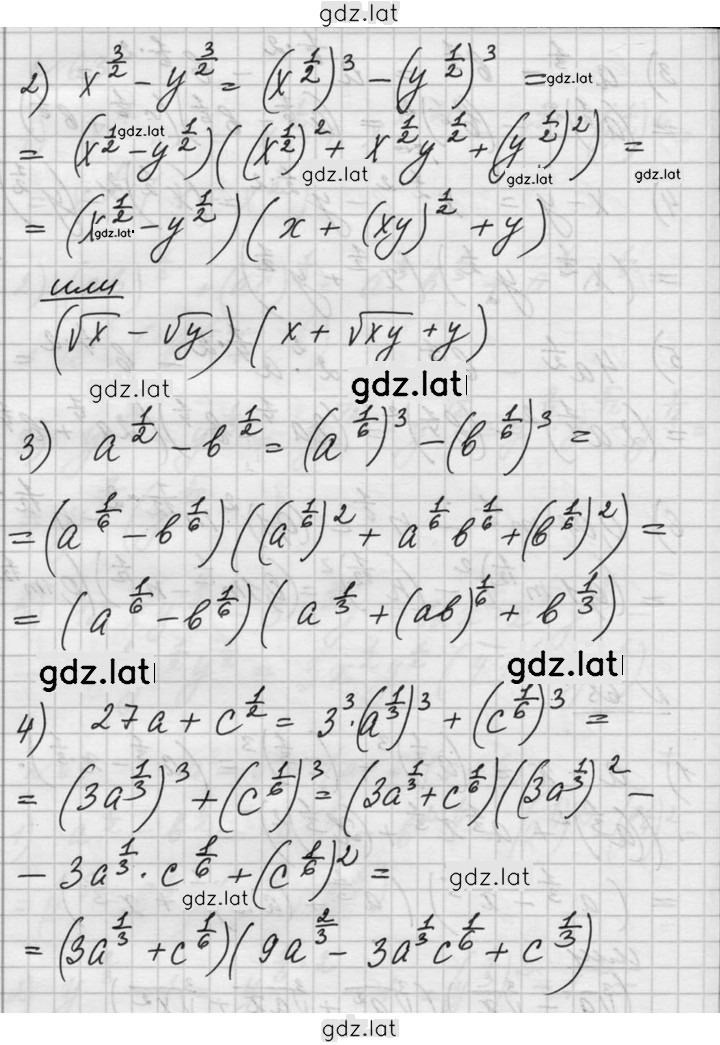 gdz.lat
2) x^{3/2} − y^{3/2} = (x^{1/2})^3 − (y^{1/2})^3 = gdz.lat
= (x^{1/2} − y^{1/2})((x^{1/2})^2 + x^{1/2}y^{1/2} + (y^{1/2})^2) =
gdz.lat gdz.lat gdz.lat gdz.lat
= (x^{1/2} − y^{1/2})(x + (xy)^{1/2} + y)
gdz.lat
или
(√x − √y)(x + √xy + y)
gdz.lat gdz.lat
3) a^{1/2} − b^{1/2} = (a^{1/6})^3 − (b^{1/6})^3 =
= (a^{1/6} − b^{1/6})((a^{1/6})^2 + a^{1/6}b^{1/6} + (b^{1/6})^2) =
= (a^{1/6} − b^{1/6})(a^{1/3} + (ab)^{1/6} + b^{1/3})
gdz.lat gdz.lat
4) 27a + c^{1/2} = 3^3·(a^{1/3})^3 + (c^{1/6})^3 =
= (3a^{1/3})^3 + (c^{1/6})^3 = (3a^{1/3} + c^{1/6})((3a^{1/3})^2 −
− 3a^{1/3}·c^{1/6} + (c^{1/6})^2 =
gdz.lat gdz.lat
= (3a^{1/3} + c^{1/6})(9a^{2/3} − 3a^{1/3}c^{1/6} + c^{1/3})
gdz.lat